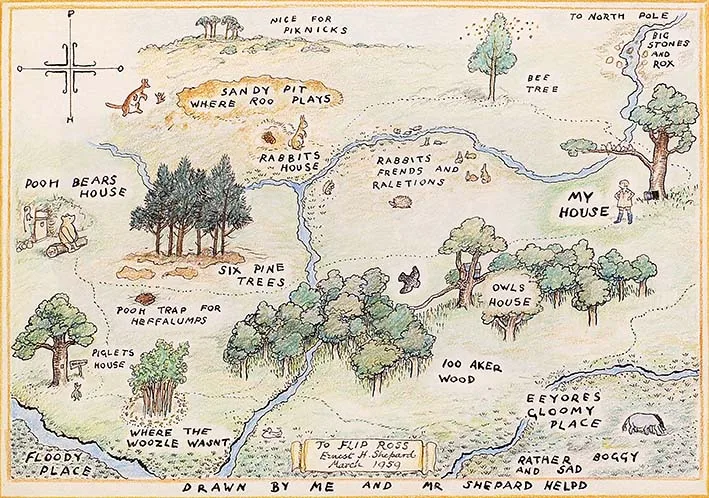 NICE FOR
PIKNICKS
TO NORTH POLE
BIG
STONES
AND
ROX
P
H
SANDY PIT
WHERE ROO PLAYS
BEE
TREE
RABBITS
HOUSE
RABBITS
FRENDS AND
RALETIONS
POOH BEARS
HOUSE
MY
HOUSE
SIX PINE
TREES
OWLS
HOUSE
POOH TRAP FOR
HEFFALUMPS
PIGLETS
HOUSE
100 AKER
WOOD
EEYORES
GLOOMY
PLACE
WHERE THE
WOOZLE WASNT
FLOODY
PLACE
TO FLIP ROSS
Ernest H. Shepard
March 1959
RATHER BOGGY
AND SAD
DRAWN BY ME AND MR SHEPARD HELPD